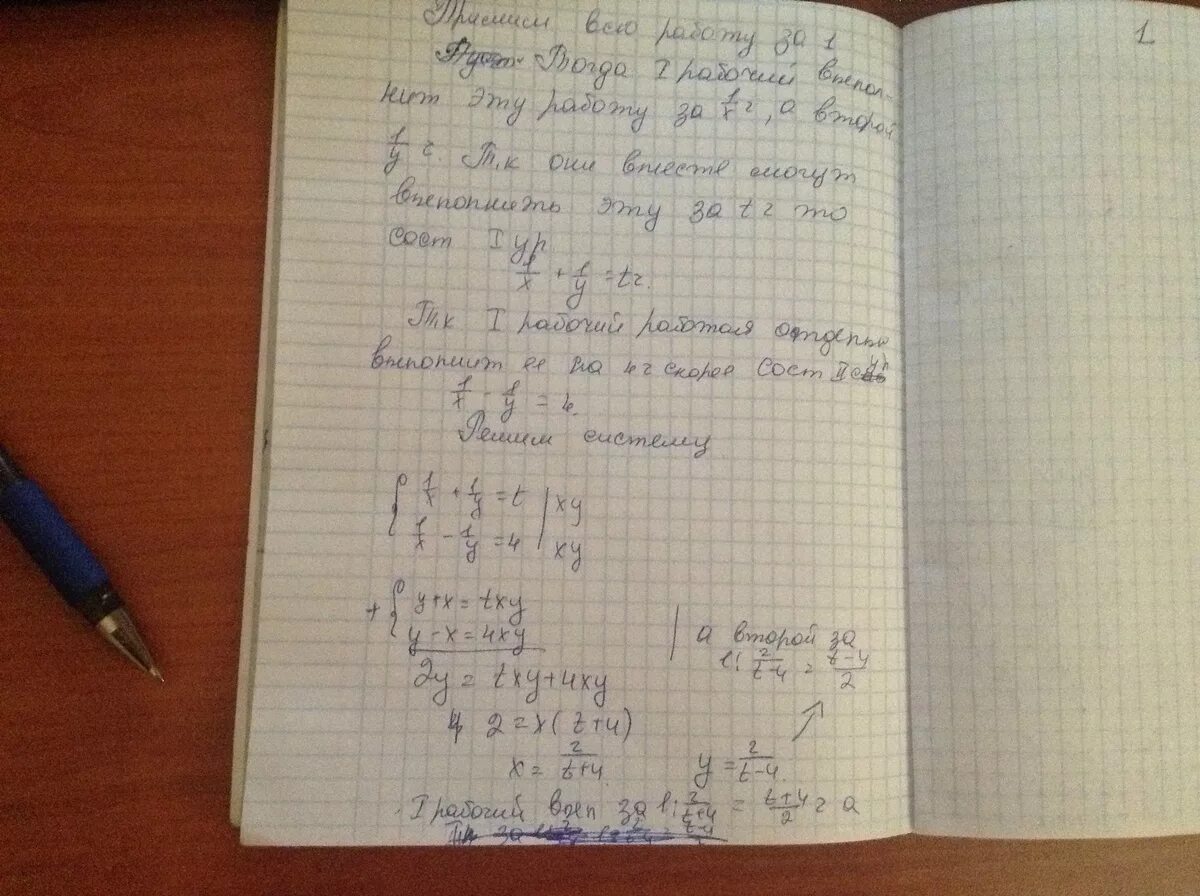 1
Примим всю работу за 1
Тогда I рабочий выпол-
нит эту работу за 1/x г, а второй
1/y г. Т.к они вместе могут
выполнить эту за t г то
сост I ур
1/x + 1/y = t г.
Т.к I рабочий работая отдельно
выполнит ее на 4 г скорее сост II ур
1/x - 1/y = 4.
Решим систему
{ 1/x + 1/y = t | xy
1/x - 1/y = 4 | xy
+ { y+x = txy
y-x = 4xy
2y = txy+4xy
2 = x(t+4)
x = 2/(t+4)
y = 2/(t-4).
I рабочий вып за 1: 2/(t+4) = (t+4)/2 г а
а второй за
1: 2/(t-4) = (t-4)/2